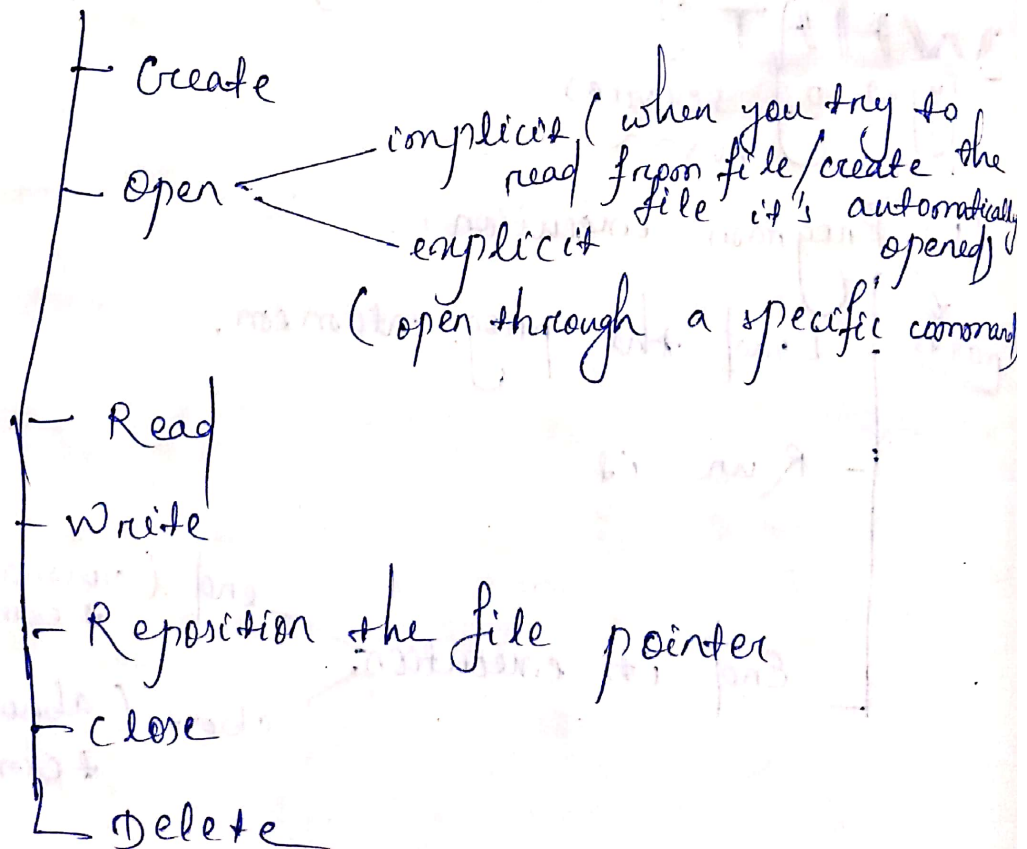 Create
Open
implicit (when you try to
read from file/create the
file it's automatically
opened)
explicit
(open through a specific command
Read
Write
Reposition the file pointer
Close
Delete